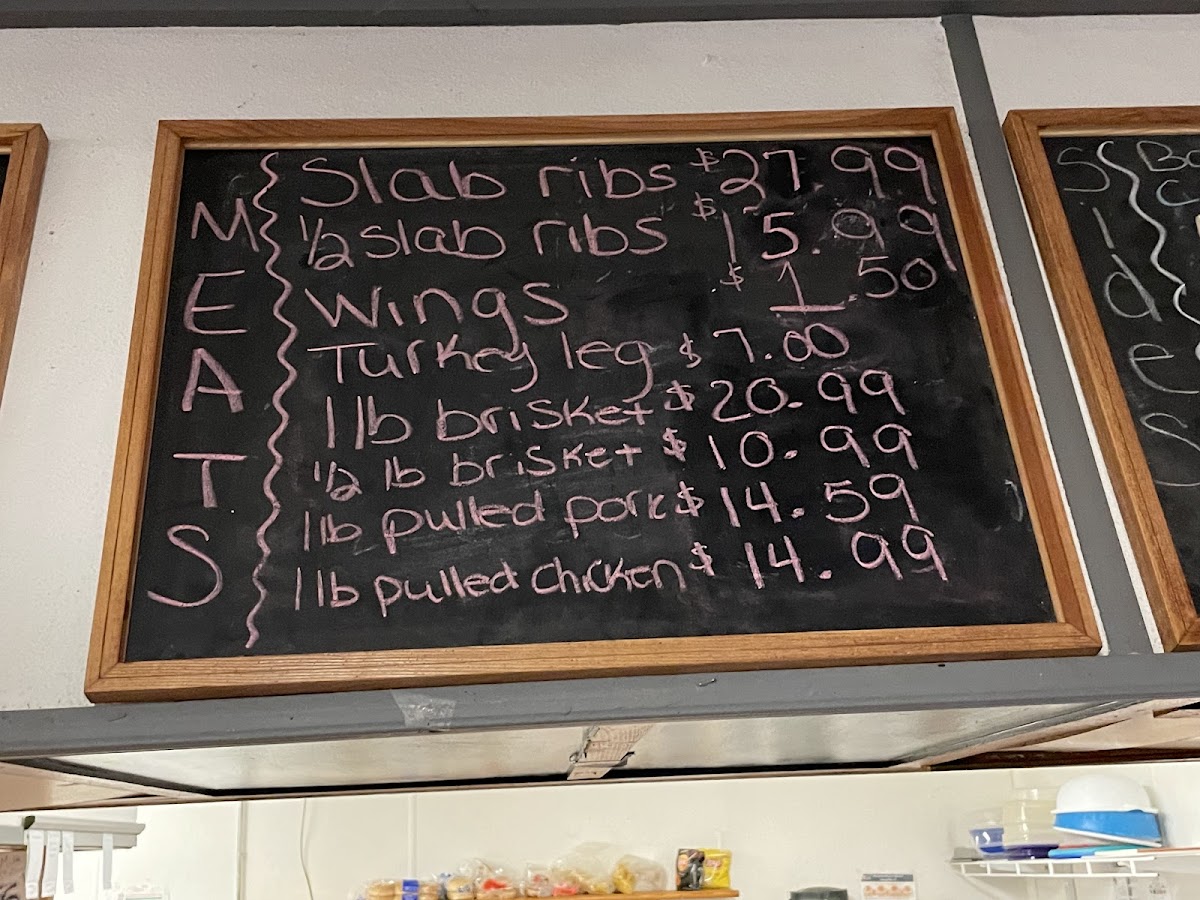 MEATS
Slab ribs $27.99
1/2 slab ribs $15.99
Wings $1.50
Turkey leg $7.00
1 lb brisket $20.99
1/2 lb brisket $10.99
1 lb pulled pork $14.59
1 lb pulled chicken $14.99
Sides